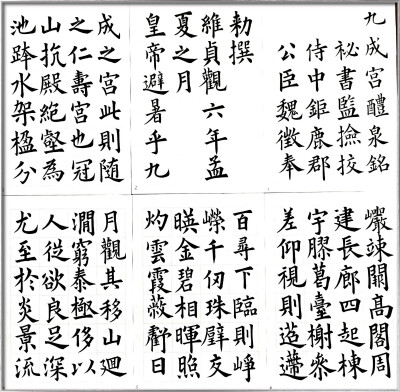 九成宮醴泉銘
祕書監撿挍
侍中鉅鹿郡
公臣魏徵奉
勑撰
維貞觀六年孟
夏之月
皇帝避暑乎九
成之宮此則隨
之仁壽宮也冠
山抗殿絕壑為
池跨水架楹分
巖竦闕高閣周
建長廊四起棟
宇膠葛臺榭參
差仰視則迢遰
百尋下臨則崢
嶸千仞珠璧交
暎金碧相暉照
灼雲霞蔽虧日
月觀其移山迴
澗窮泰極侈以
人從欲良足深
尤至於炎景流